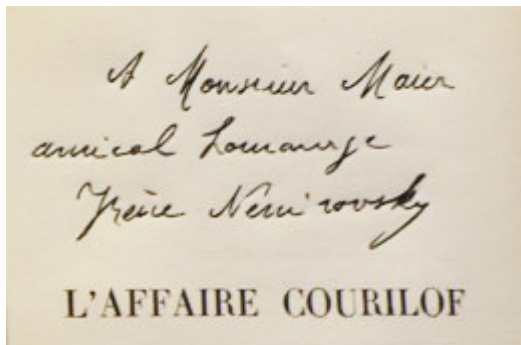 A Monsieur Maier
amical hommage
Irène Némirovsky
L'AFFAIRE COURILOF